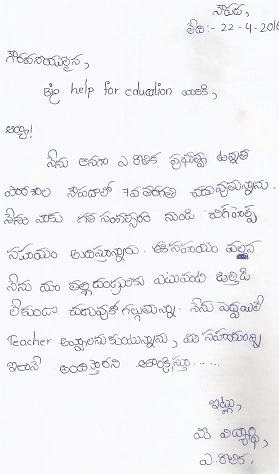 నౌకుడు,
తేది:- 22-4-2016
గౌరవనీయులైన,
Big help for education వారికి,
అయ్యా!
నేను అనగా ఎ. రితిక ప్రభుత్వ ఉన్నత
పాఠశాల నౌపడాలో 7వ తరగతి చదువుతున్నాను.
నేను మీకు గత సంవత్సరం నుండి బిగ్‌హెల్ప్
సహాయం అందుతున్నాను. ఈ సహాయం వల్లన
నేను మా తల్లిదండ్రులకు ఎటువంటి ఒత్తిడి
లేకుండా చదువుకోగల్గుతున్నా. నేను పెద్దయితే
Teacher అవ్వాలనుకుంటున్నాను, మీ సహాయాన్ని
ఇలానే అందిస్తారని ఆకాంక్షిస్తూ......
ఇట్లు,
మీ విద్యార్థి,
ఎ. రితిక.